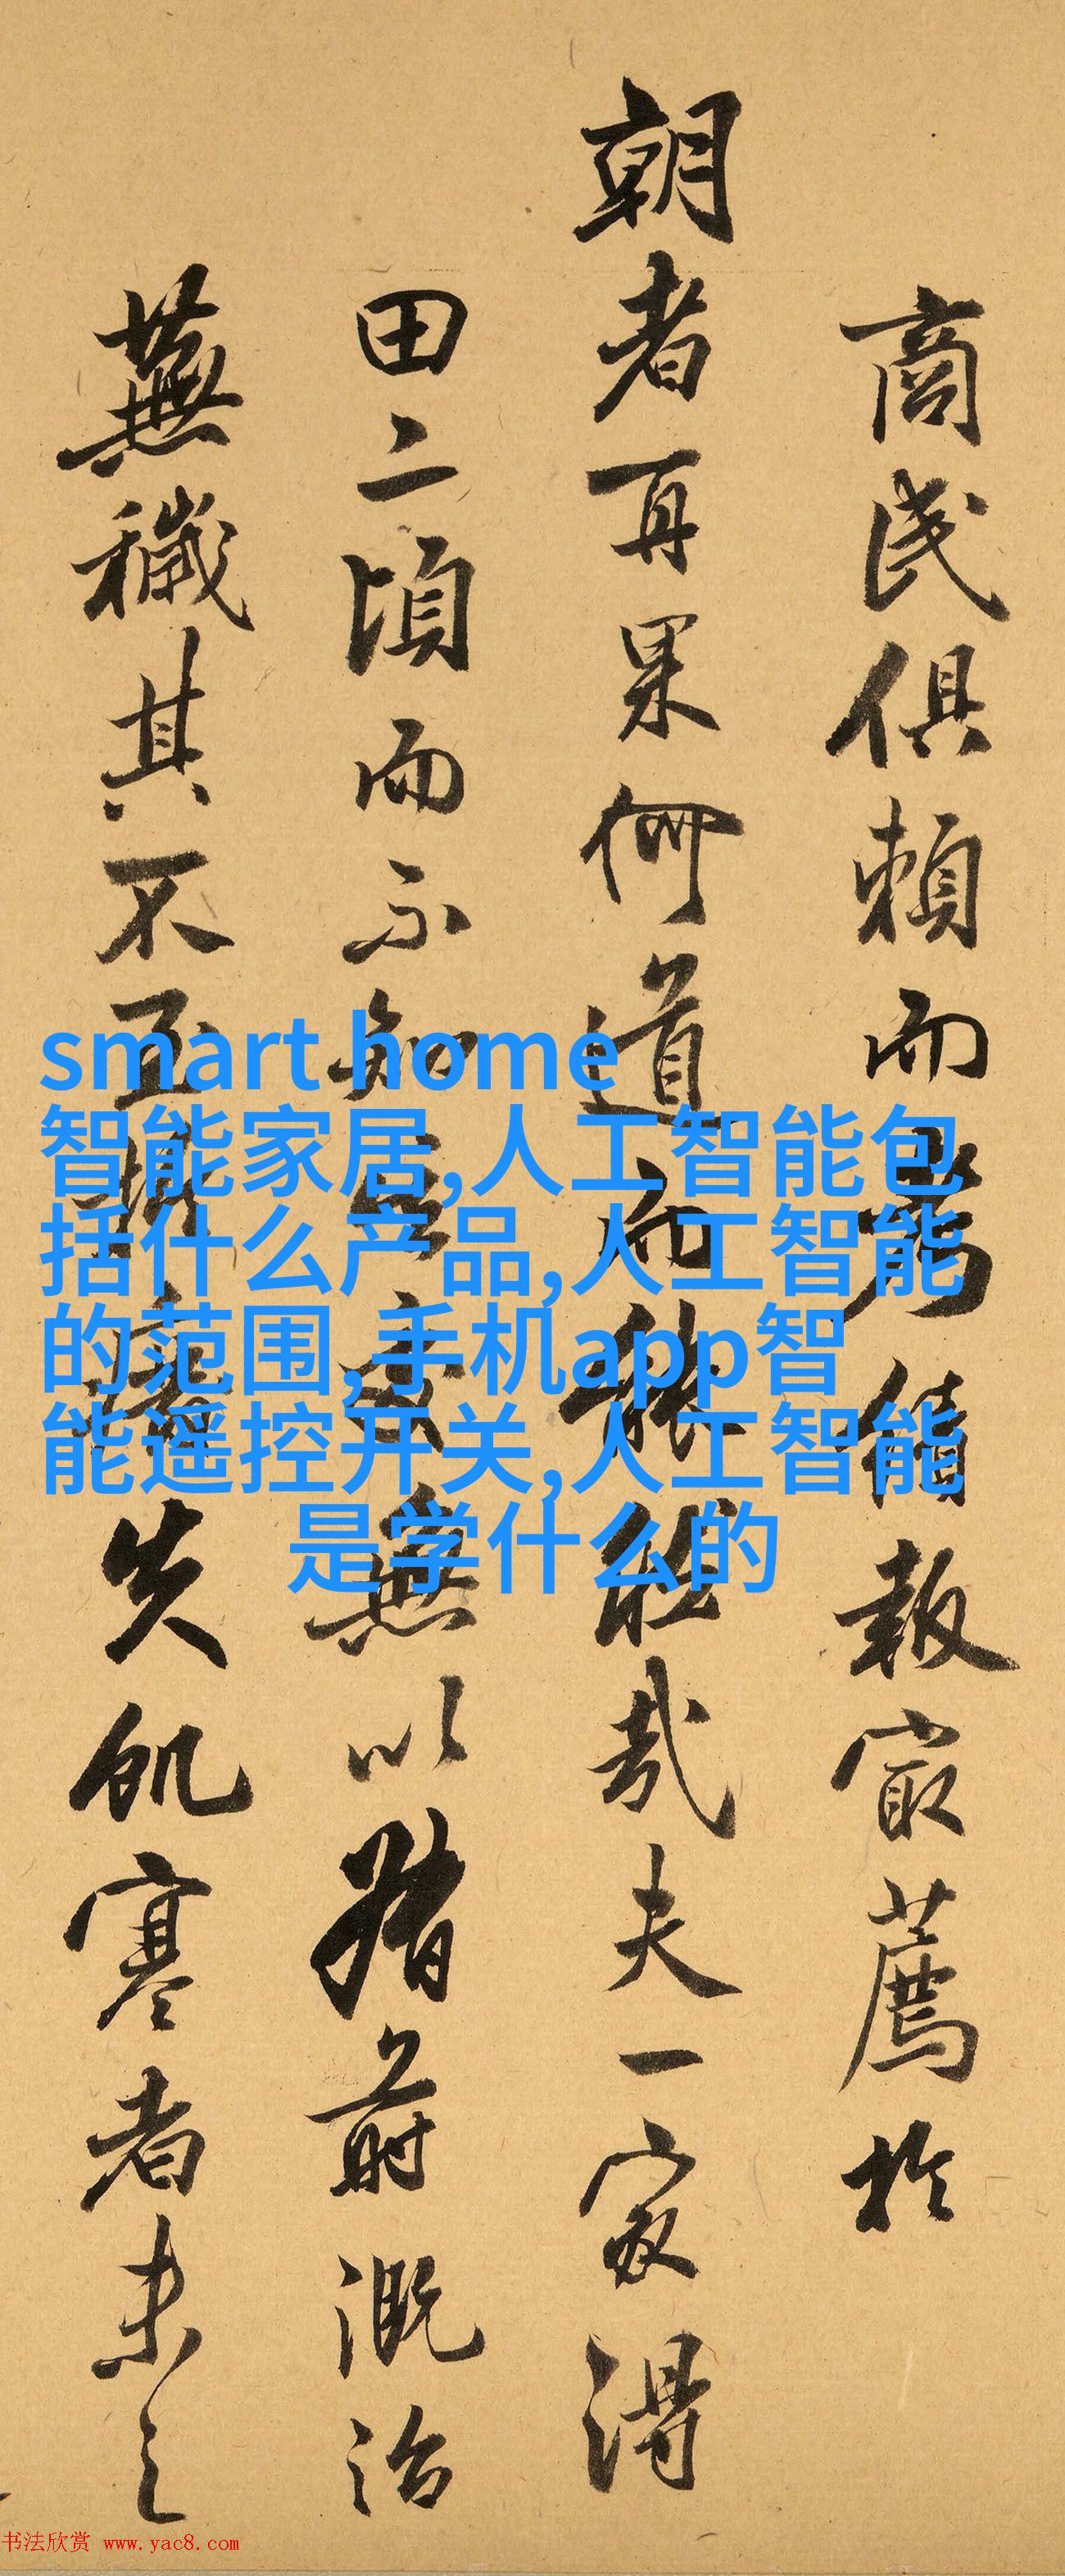 商民俱賴而績報冣薦於
朝者再果何道而哉夫一家得
田二頃而不知無以前溉治
蕪穢其不至失飢寒者未之
smart home
智能家居,人工智能包
括什么产品,人工智能
的范围,手机app智
能遥控开关,人工智能
是学什么的
书法欣赏 www.yac8.com